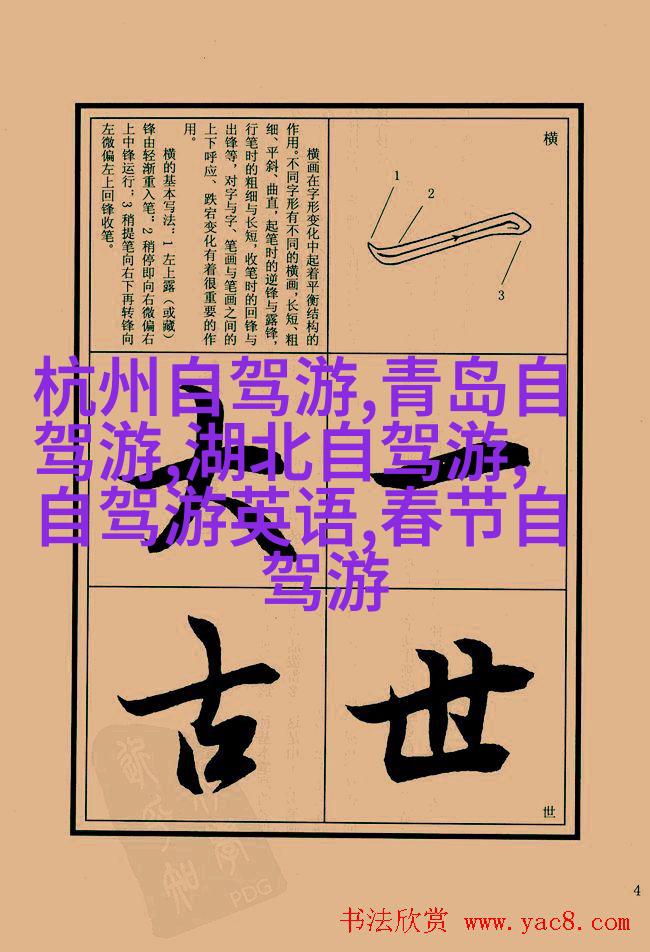 横
1
2
3
横画在字形变化中起着平衡结构的
作用。不同字形有不同的横画，长短、粗
细、平斜、曲直，起笔时的逆锋与露锋，
行笔时的粗细与长短，收笔时的回锋与
出锋等，对字与字、笔画与笔画之间的
上下呼应、跌宕变化有着很重要的作
用。
横的基本写法：1 左上露（或藏）
锋由轻渐重入笔；2 稍停即向右微偏右
上中锋运行；3 稍提笔向右下再转锋向
左微偏左上回锋收笔。
杭州自驾游,青岛自
驾游,湖北自驾游,
自驾游英语,春节自
驾游
一
大
世
古
世
PDG
4
书法欣赏 www.yac8.com